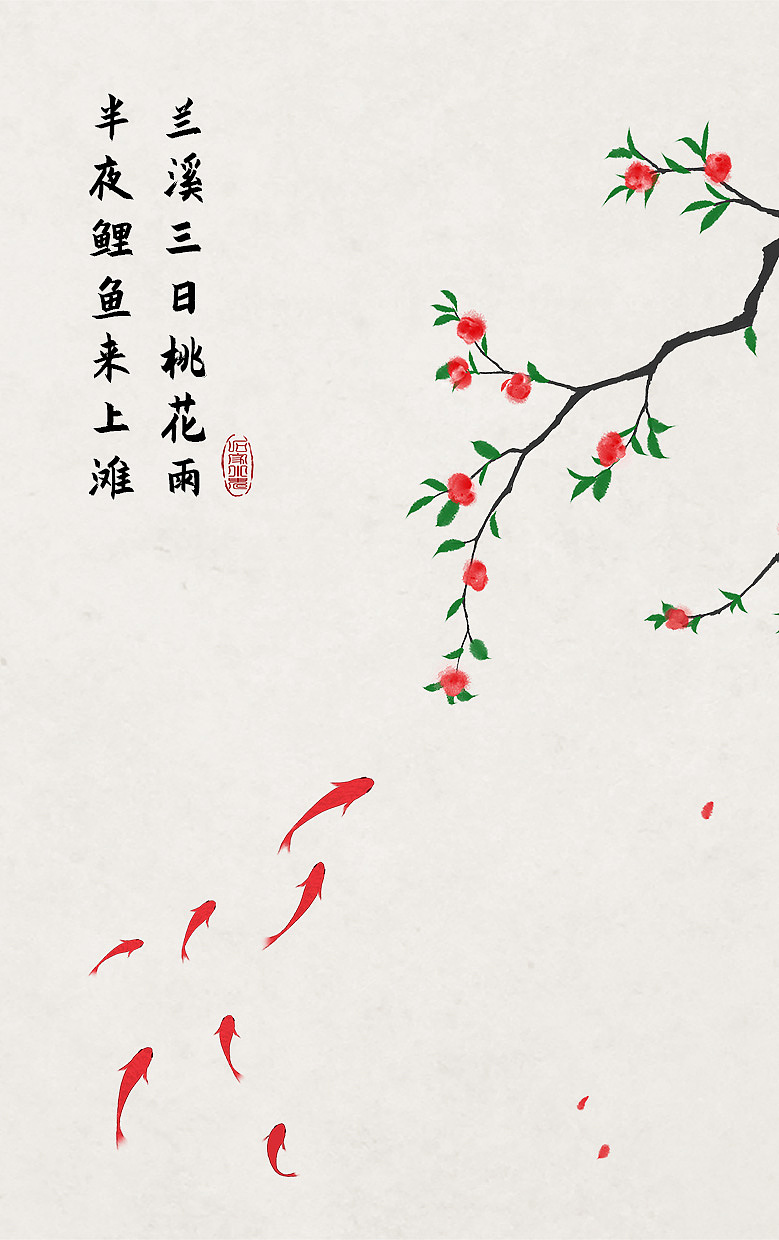 兰溪三日桃花雨
半夜鲤鱼来上滩